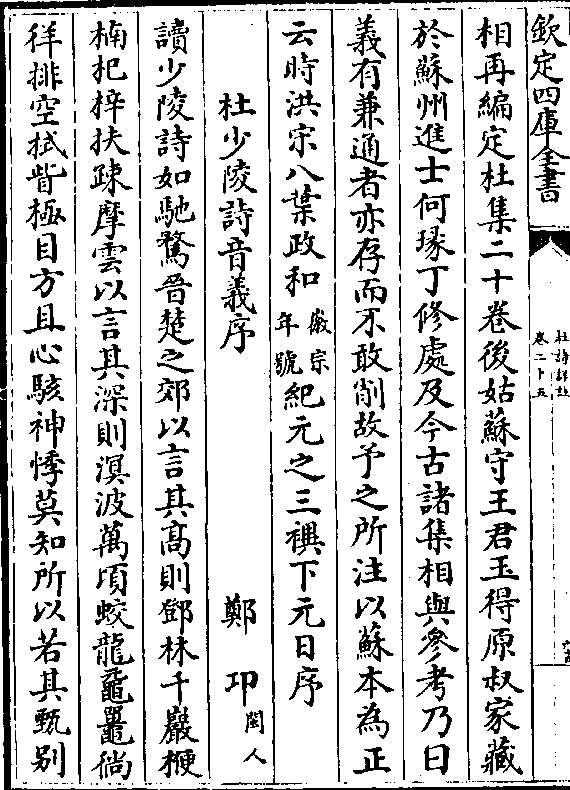 欽定四庫全書
杜詩詳註
卷二十五
相再編定杜集二十卷後姑蘇守王君玉得原叔家藏
於蘇州進士何瑑丁修處及今古諸集相與參考乃曰
義有兼通者亦存而不敢削故予之所注以蘇本為正
云時洪宗八葉政和徽宗年號紀元之三禩下元日序
杜少陵詩音義序 鄭卬閩人
讀少陵詩如馳騖晉楚之郊以言其高則鄧林千巖楩
楠杞梓扶疎摩雲以言其深則溟波萬頃蛟龍黿鼉徜
徉排空拭眥極目方且心駭神悸莫知所以若其甄别